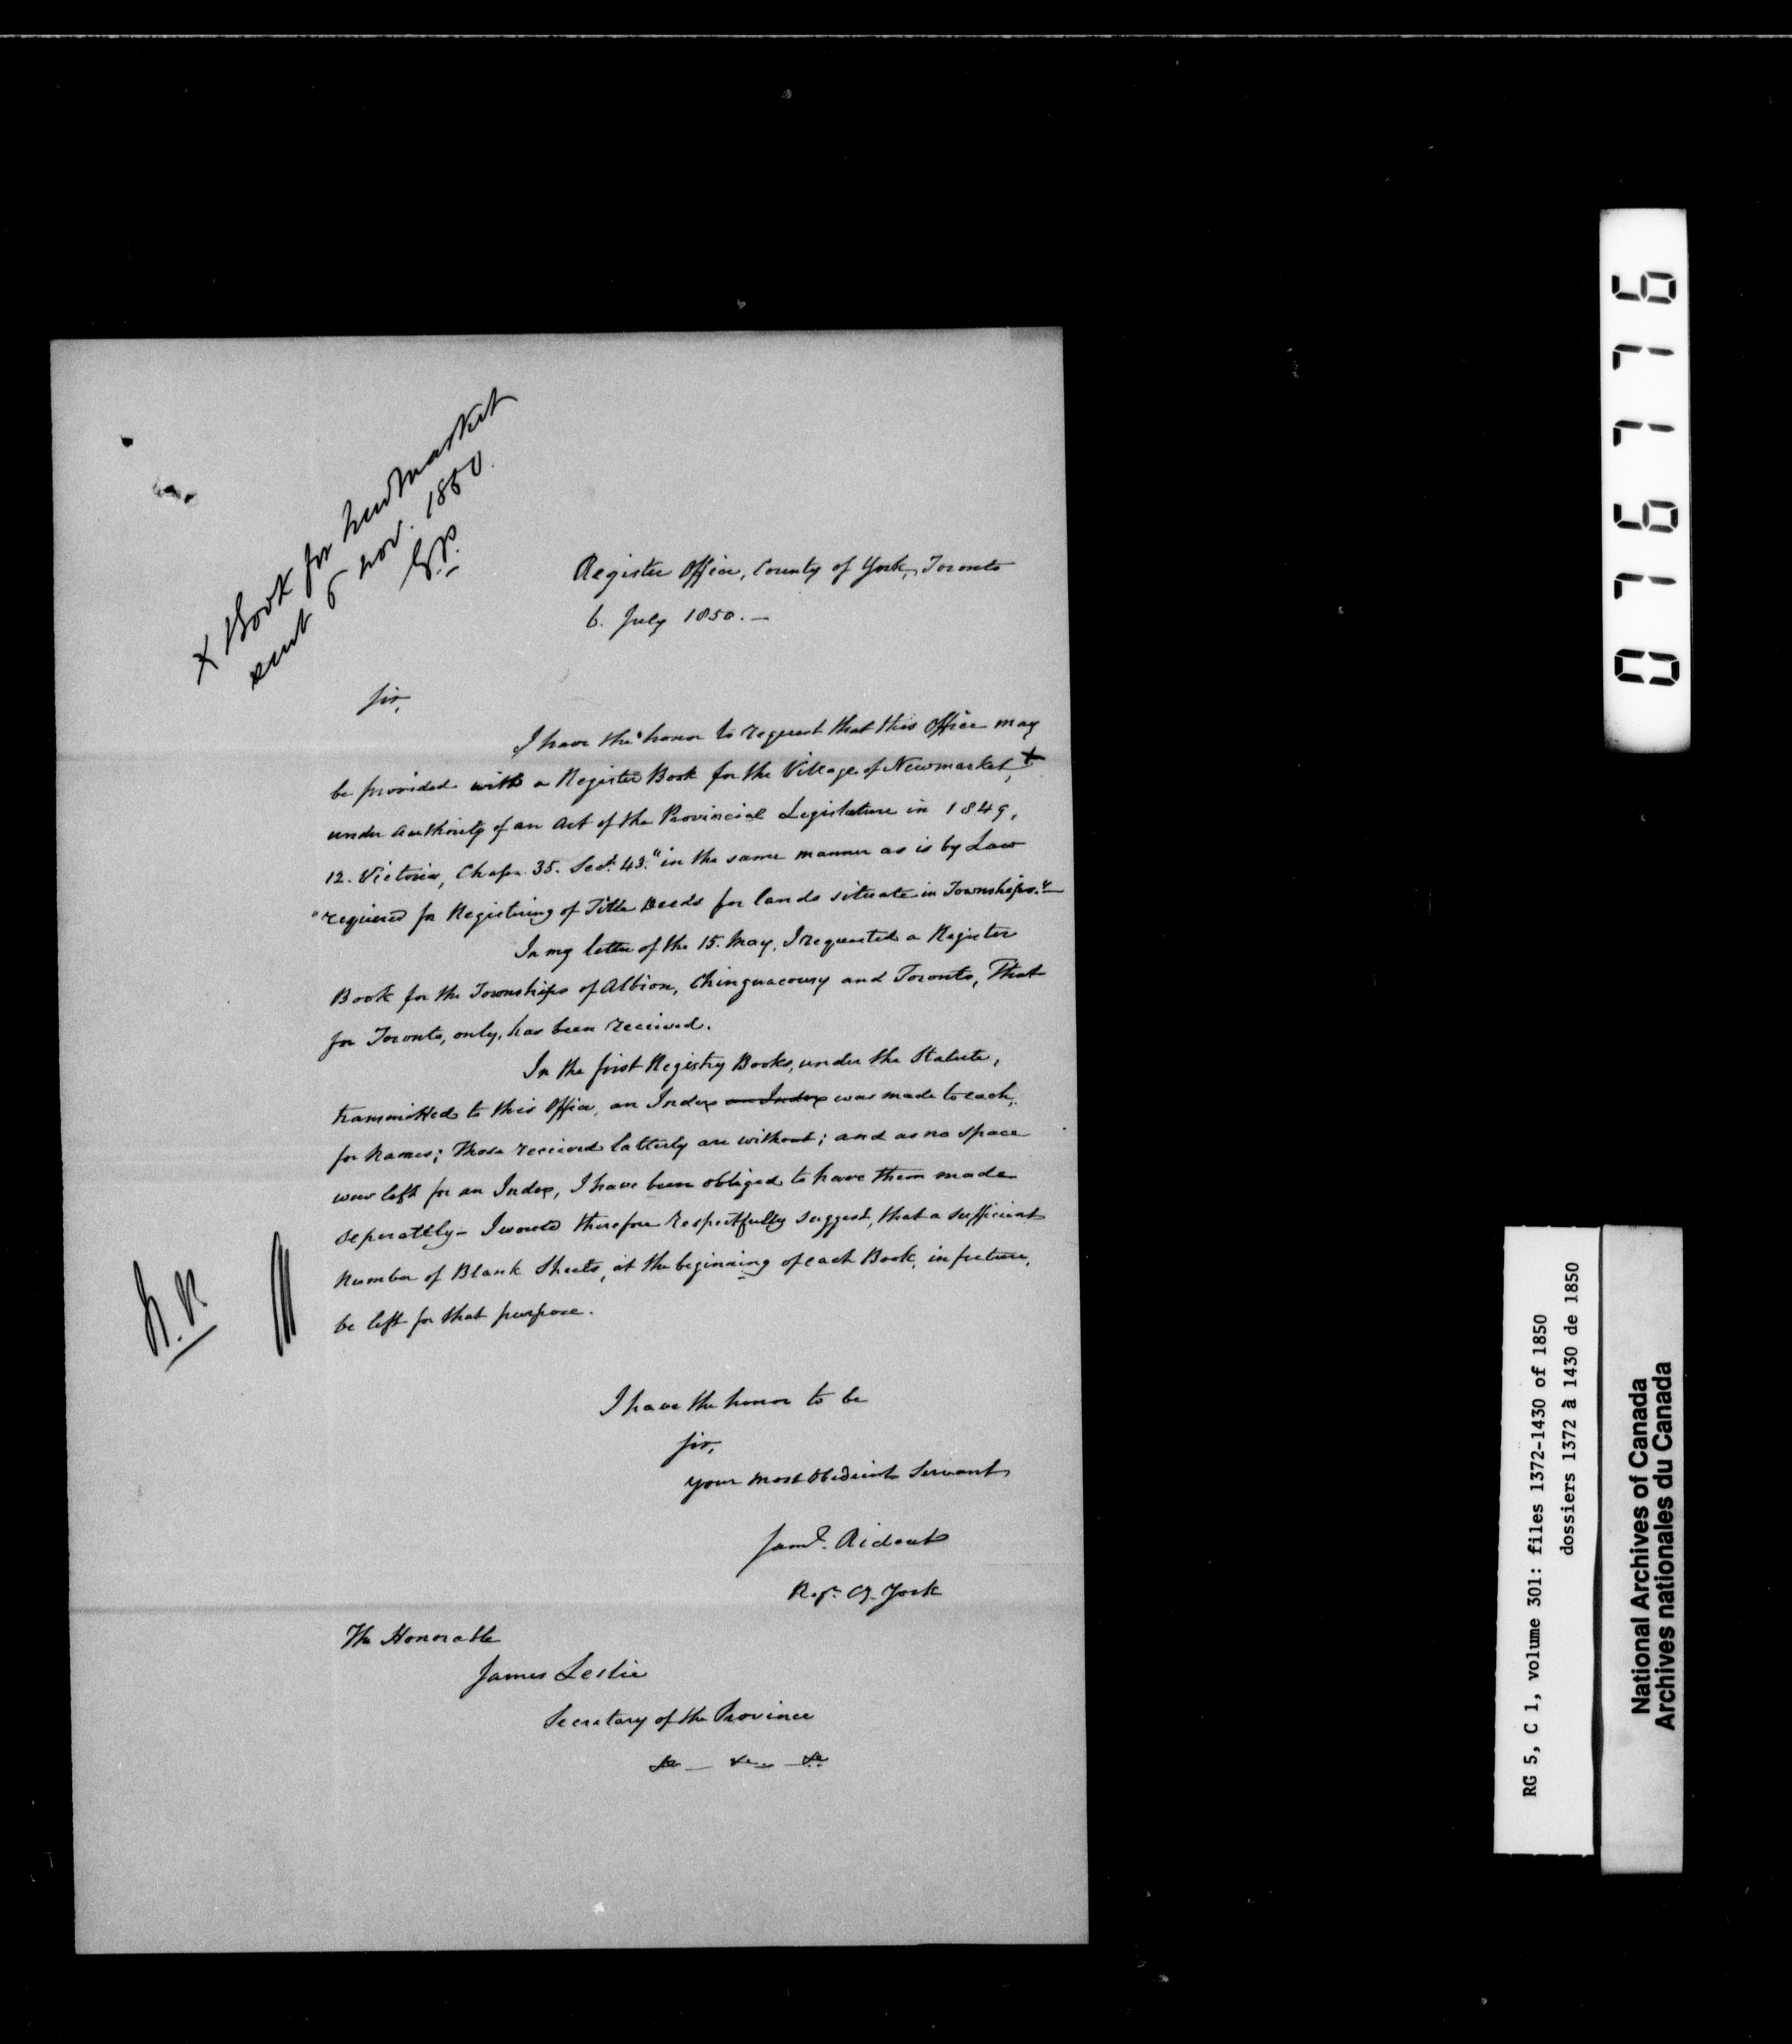 x Book for Newmarket
sent 6 Nov. 1850.
Register Office, County of York, Toronto
6. July 1850.—
Sir,
I have the honor to request that this Office may
be provided with a Register Book for the Village of Newmarket, x
under authority of an Act of the Provincial Legislature in 1849,
12. Victoria, Chap. 35. Sect. 43. "in the same manner as is by Law
"required for Registering of Title Deeds for lands situate in Townships."
In my letter of the 15. May, I requested a Register
Book for the Townships of Albion, Chinguacousy and Toronto, That
for Toronto, only, has been received.
In the first Registry Books, under the Statute,
transmitted to this Office, an Index an Index was made to each,
for names; those received latterly are without; and as no space
was left for an Index, I have been obliged to have them made
seperately – I would therefore respectfully suggest, that a sufficient
number of Blank Sheets, at the beginning of each Book, in future,
be left for that purpose.
I have the honor to be
Sir,
your most obedient Servant
Saml. Ridout
Regr. Cy. York
The Honorable
James Leslie
Secretary of the Province
&c — &c — &c
076776
RG 5, C 1, volume 301: files 1372-1430 of 1850
dossiers 1372 à 1430 de 1850
National Archives of Canada
Archives nationales du Canada